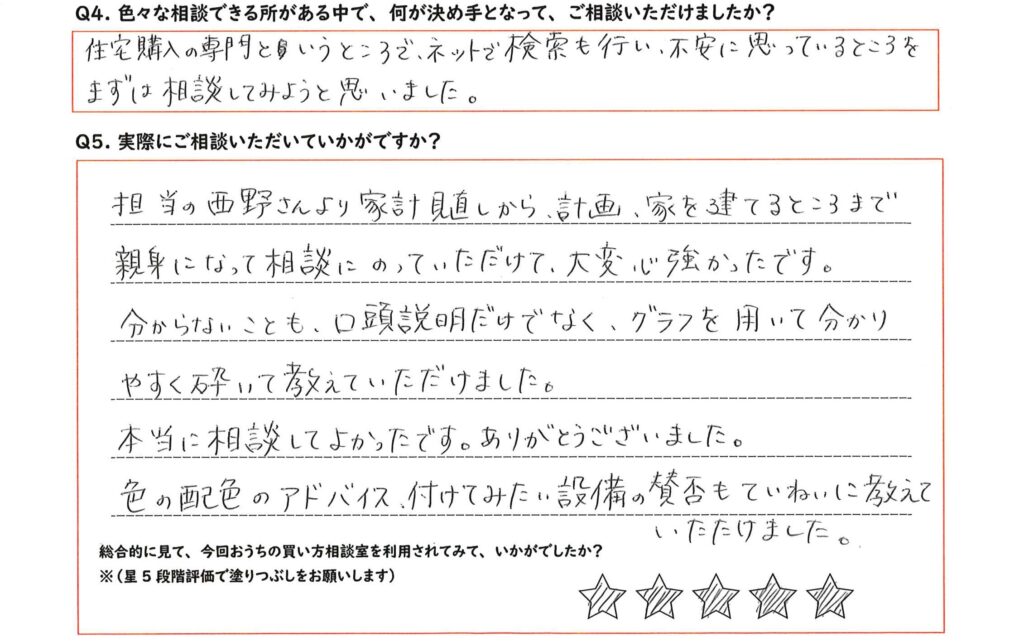 Q4. 色々な相談できる所がある中で、何が決め手となって、ご相談いただけましたか？
住宅購入の専門というところで、ネットで検索も行い、不安に思っているところを
まずは相談してみようと思いました。
Q5. 実際にご相談いただいていかがですか？
担当の西野さんより家計見直しから、計画、家を建てるところまで
親身になって相談にのっていただけて、大変心強かったです。
分からないことも、口頭説明だけでなく、グラフを用いて分かり
やすく砕いて教えていただけました。
本当に相談してよかったです。ありがとうございました。
色の配色のアドバイス、付けてみたい設備の賛否もていねいに教えて
いただけました。
総合的に見て、今回おうちの買い方相談室を利用されてみて、いかがでしたか？
※（星５段階評価で塗りつぶしをお願いします）